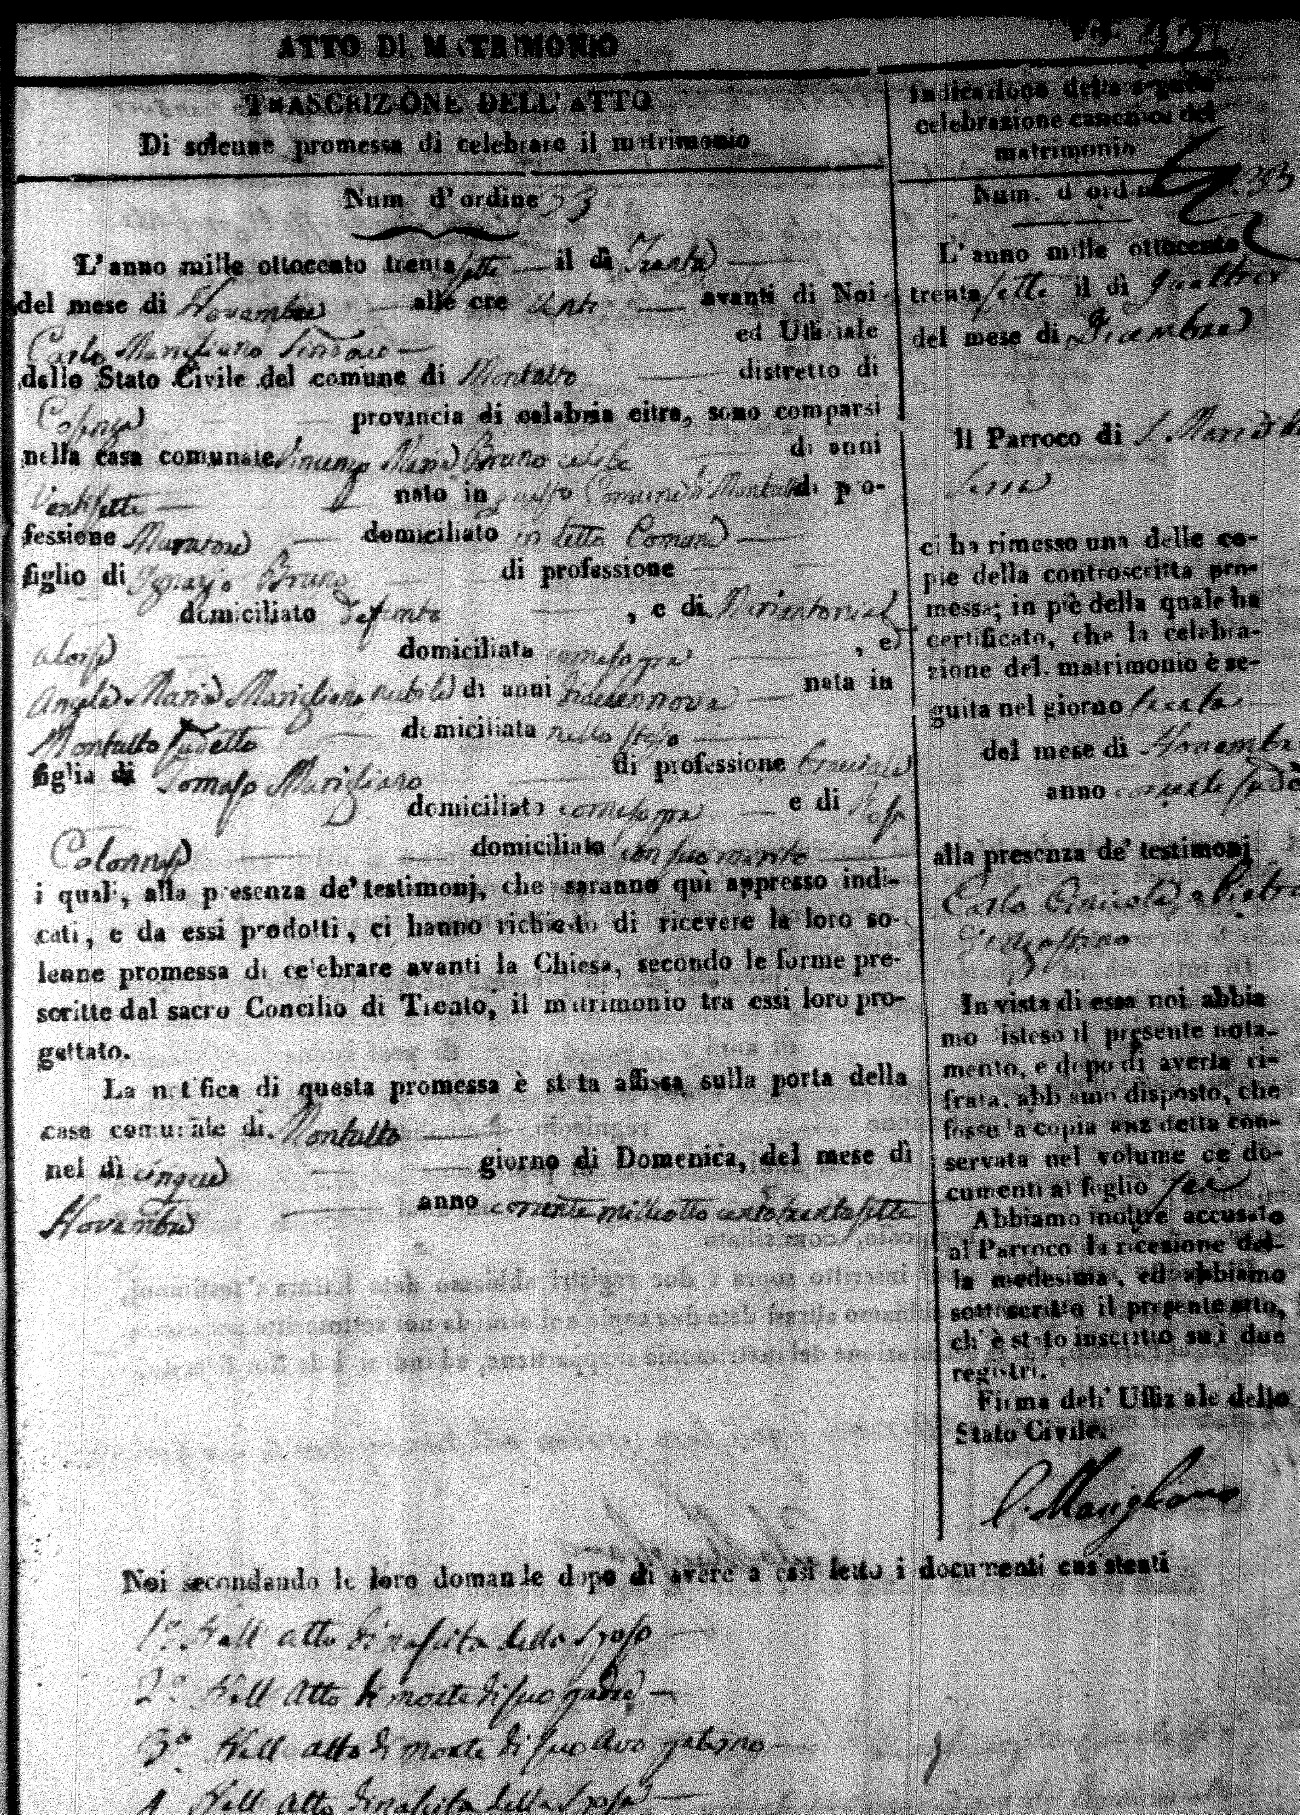 ATTO DI MATRIMONIO
TRASCRIZIONE DELL' ATTO
Di solenne promessa di celebrare il matrimonio
Num d'ordine 33
L'anno mille ottocento trentasette il dì Trenta
del mese di Novembre alle ore venti avanti di Noi
Carlo Marigliano Sindaco ed Uffiziale
dello Stato Civile del comune di Montalto distretto di
Cosenza provincia di calabria citra, sono comparsi
nella casa comunale Vincenzo Maria Bruno celibe di anni
Ventisette nato in questo Comune di Montalto di pro-
fessione Muratore domiciliato in detto Comune
figlio di Ignazio Bruno di professione
domiciliato defunto , e di
domiciliata come sopra , e
Angela Maria Marigliano nubile di anni diecennove nata in
Montalto sudetto domiciliata nello stesso
figlia di Tomaso Marigliano di professione
domiciliato come sopra e di Rosa
Colonnese domiciliata con suo marito
i quali, alla presenza de' testimonj, che saranno quì appresso indi-
cati, e da essi prodotti, ci hanno richiesto di ricevere la loro so-
lenne promessa di celebrare avanti la Chiesa, secondo le forme pre-
scritte dal sacro Concilio di Trento, il matrimonio tra essi loro pro-
gettato.
La notifica di questa promessa è stata affissa sulla porta della
casa comunale di Montalto
nel dì cinque giorno di Domenica, del mese dì
Novembre anno corrente milleottocentotrentasette
Indicazione della seguita
celebrazione canonica del
matrimonio
Num. d'ordine 33
L'anno mille ottocento
trentasette il dì quattro
del mese di Dicembre
Il Parroco di S. Maria
ci ha rimesso una delle co-
pie della controscritta pro-
messa; in piè della quale ha
certificato, che la celebra-
zione del matrimonio è se-
guita nel giorno trenta
del mese di Novembre
anno corrente
alla presenza de' testimonj
Carlo e Pietro
In vista di essa noi abbia
mo disteso il presente nota-
mento, e dopo di averla ci-
frata, abbiamo disposto, che
fosse la copia anzidetta con-
servata nel volume de' do-
cumenti al foglio sei
Abbiamo inoltre accusato
al Parroco la ricezione del-
la medesima, ed abbiamo
sottoscritto il presente atto,
ch' è stato inscritto sui due
registri.
Firma dell' Uffiziale dello
Stato Civile.
C. Marigliano
Noi secondando le loro domande dopo di avere a essi letto i documenti consistenti
1.° Nell atto di nascita dello Sposo
2.° Nell Atto di morte di suo padre
3.° Nell atto di morte di suo Avo paterno
4 Nell Atto di nascita della Sposa